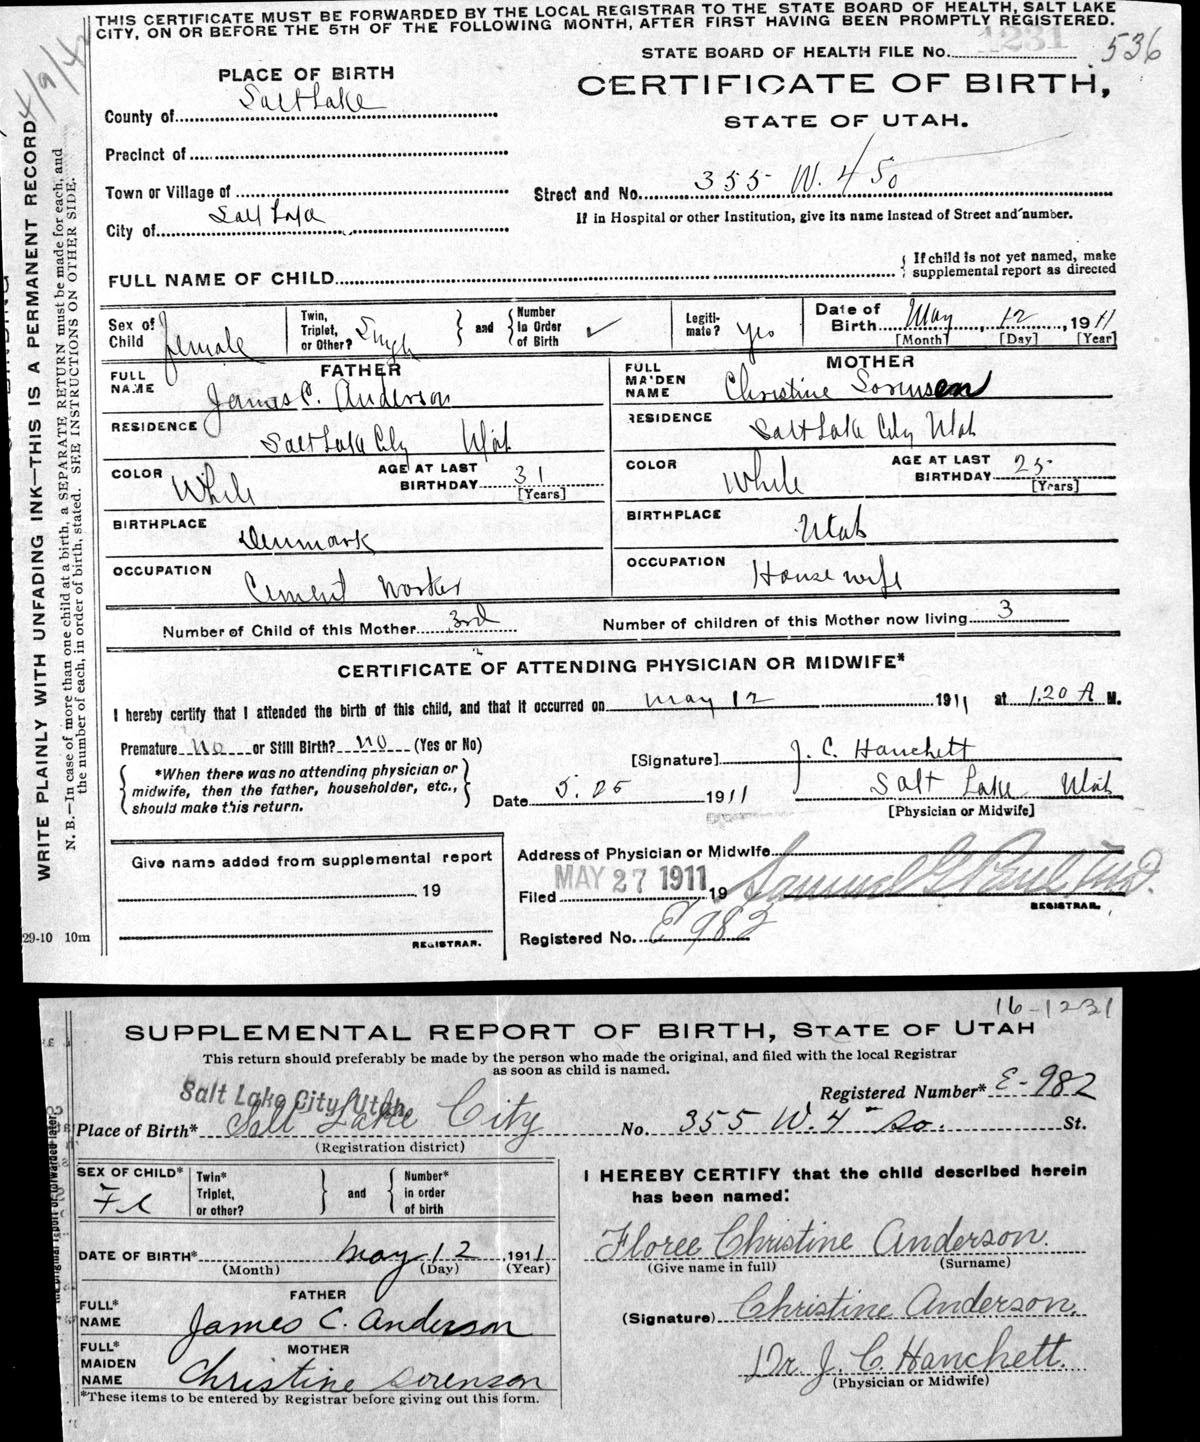 THIS CERTIFICATE MUST BE FORWARDED BY THE LOCAL REGISTRAR TO THE STATE BOARD OF HEALTH, SALT LAKE
CITY, ON OR BEFORE THE 5TH OF THE FOLLOWING MONTH, AFTER FIRST HAVING BEEN PROMPTLY REGISTERED.
STATE BOARD OF HEALTH FILE No. 1231 536
4/9/42
PLACE OF BIRTH
CERTIFICATE OF BIRTH,
STATE OF UTAH.
County of Salt Lake
Precinct of
Town or Village of
Street and No. 355 W. 4 So
City of Salt Lake
If in Hospital or other Institution, give its name instead of Street and number.
FULL NAME OF CHILD
If child is not yet named, make
supplemental report as directed
Sex of Child Female
Twin, Triplet, or Other? Single and Number in Order of Birth ✓
Legiti-mate? Yes
Date of Birth May 12, 1911
[Month] [Day] [Year]
FATHER
MOTHER
FULL NAME James C. Anderson
FULL MAIDEN NAME Christine Sorensen
RESIDENCE Salt Lake City Utah
RESIDENCE Salt Lake City Utah
COLOR White AGE AT LAST BIRTHDAY 31 [Years]
COLOR White AGE AT LAST BIRTHDAY 25 [Years]
BIRTHPLACE Denmark
BIRTHPLACE Utah
OCCUPATION Cement Worker
OCCUPATION House wife
Number of Child of this Mother 3rd Number of children of this Mother now living 3
CERTIFICATE OF ATTENDING PHYSICIAN OR MIDWIFE*
I hereby certify that I attended the birth of this child, and that it occurred on May 12 1911 at 1.20 A M.
Premature No or Still Birth? No (Yes or No)
[Signature] J. C. Hanchett
*When there was no attending physician or
midwife, then the father, householder, etc.,
should make this return.
Date 5.25 1911
Salt Lake Utah
[Physician or Midwife]
Give name added from supplemental report
19
REGISTRAR.
Address of Physician or Midwife
Filed MAY 27 1911 19 Samuel G. Paul M.D.
REGISTRAR.
Registered No. E 982
29-10 10m
WRITE PLAINLY WITH UNFADING INK—THIS IS A PERMANENT RECORD
N. B.—In case of more than one child at a birth, a SEPARATE RETURN must be made for each, and
the number of each, in order of birth, stated. SEE INSTRUCTIONS ON OTHER SIDE.
16-1231
SUPPLEMENTAL REPORT OF BIRTH, STATE OF UTAH
This return should preferably be made by the person who made the original, and filed with the local Registrar
as soon as child is named.
Salt Lake City, Utah.
Registered Number* E-982
Place of Birth* Salt Lake City No. 355 W. 4 So. St.
(Registration district)
SEX OF CHILD* Fe
Twin* Triplet, or other? and Number* in order of birth
DATE OF BIRTH* May 12 1911
(Month) (Day) (Year)
FATHER
FULL* NAME James C. Anderson
MOTHER
FULL* MAIDEN NAME Christine Sorenson
*These items to be entered by Registrar before giving out this form.
I HEREBY CERTIFY that the child described herein
has been named:
Floree Christine Anderson.
(Give name in full) (Surname)
(Signature) Christine Anderson.
Dr. J. C. Hanchett.
(Physician or Midwife)